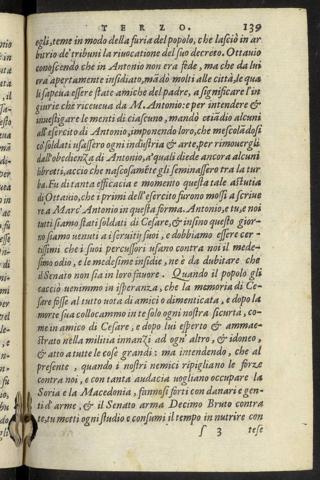 TERZO. 139
egli, teme in modo della furia del popolo, che lasciò in ar
bitrio de' tribuni la riuocatione del suo decreto. Ottauio
conoscendo che in Antonio non era fede, ma che da lui
era apertamente insidiato, mãdò molti alle città, le qua
li sapeua essere state amiche del padre, a significare l'in
giurie che riceueua da M. Antonio: e per intendere &
inuestigare le menti di ciascuno, mandò etiãdio alcuni
all'esercito di Antonio, imponendo loro, che mescolãdosi
co' soldati usassero ogni industria & arte, per rimouergli
dall'obedienza di Antonio, a' quali diede ancora alcuni
libretti, accio che nascosamẽte gli seminassero tra la tur
ba. Fu di tanta efficacia e momento questa tale astutia
di Ottauio, che i primi dell'esercito furono mossi a scriue
re a Marc' Antonio in questa forma. Antonio, e tu, e noi
tutti siamo stati soldati di Cesare, & insino questo gior-
no siamo uenuti a seruitij suoi, e dobbiamo essere cer-
tissimi che i suoi percussori usano contra noi il mede-
simo odio, e le medesime insidie, ne è da dubitare che
il Senato non sia in loro fauore. Quando il popolo gli
cacciò uenimmo in isperanza, che la memoria di Ce-
sare fosse al tutto uota di amici o dimenticata, e dopo la
morte sua collocammo in te solo ogni nostra sicurtà, co-
me in amico di Cesare, e dopo lui esperto & ammae-
strato nella militia innanzi ad ogn' altro, & idoneo,
& atto a tutte le cose grandi: ma intendendo, che al
presente, quando i nostri nemici ripigliano le forze
contra noi, e con tanta audacia uogliano occupare la
Soria e la Macedonia, fannosi forti con danari e gen-
ti d'arme, & il Senato arma Decimo Bruto contra
te, tu metti ogni studio e consumi il tempo in nutrire con
ſ 3 tese